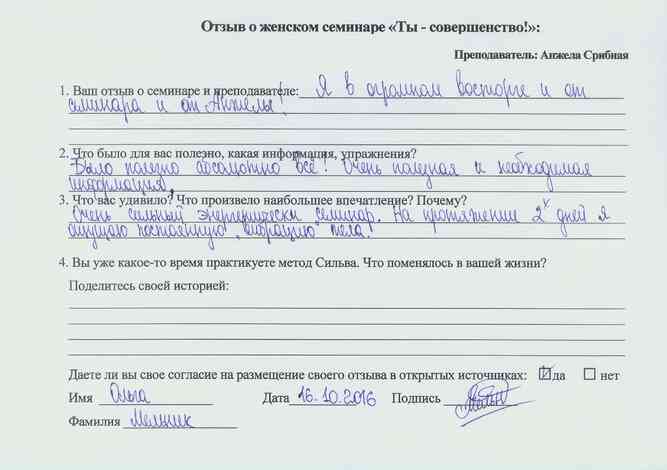 Отзыв о женском семинаре «Ты - совершенство!»:
Преподаватель: Анжела Срибная
1. Ваш отзыв о семинаре и преподавателе: Я в огромном восторге и от
семинара и от Анжелы!
2. Что было для вас полезно, какая информация, упражнения?
Было полезно абсолютно всё! Очень полезная и необходимая
информация.
3. Что вас удивило? Что произвело наибольшее впечатление? Почему?
Очень сильный энергетически семинар. На протяжении 2х дней я
ощущаю постоянную вибрацию тела.
4. Вы уже какое-то время практикуете метод Сильва. Что поменялось в вашей жизни?
Поделитесь своей историей:
Даете ли вы свое согласие на размещение своего отзыва в открытых источниках: да нет
Имя Ольга Дата 16.10.2016 Подпись
Фамилия Мельник